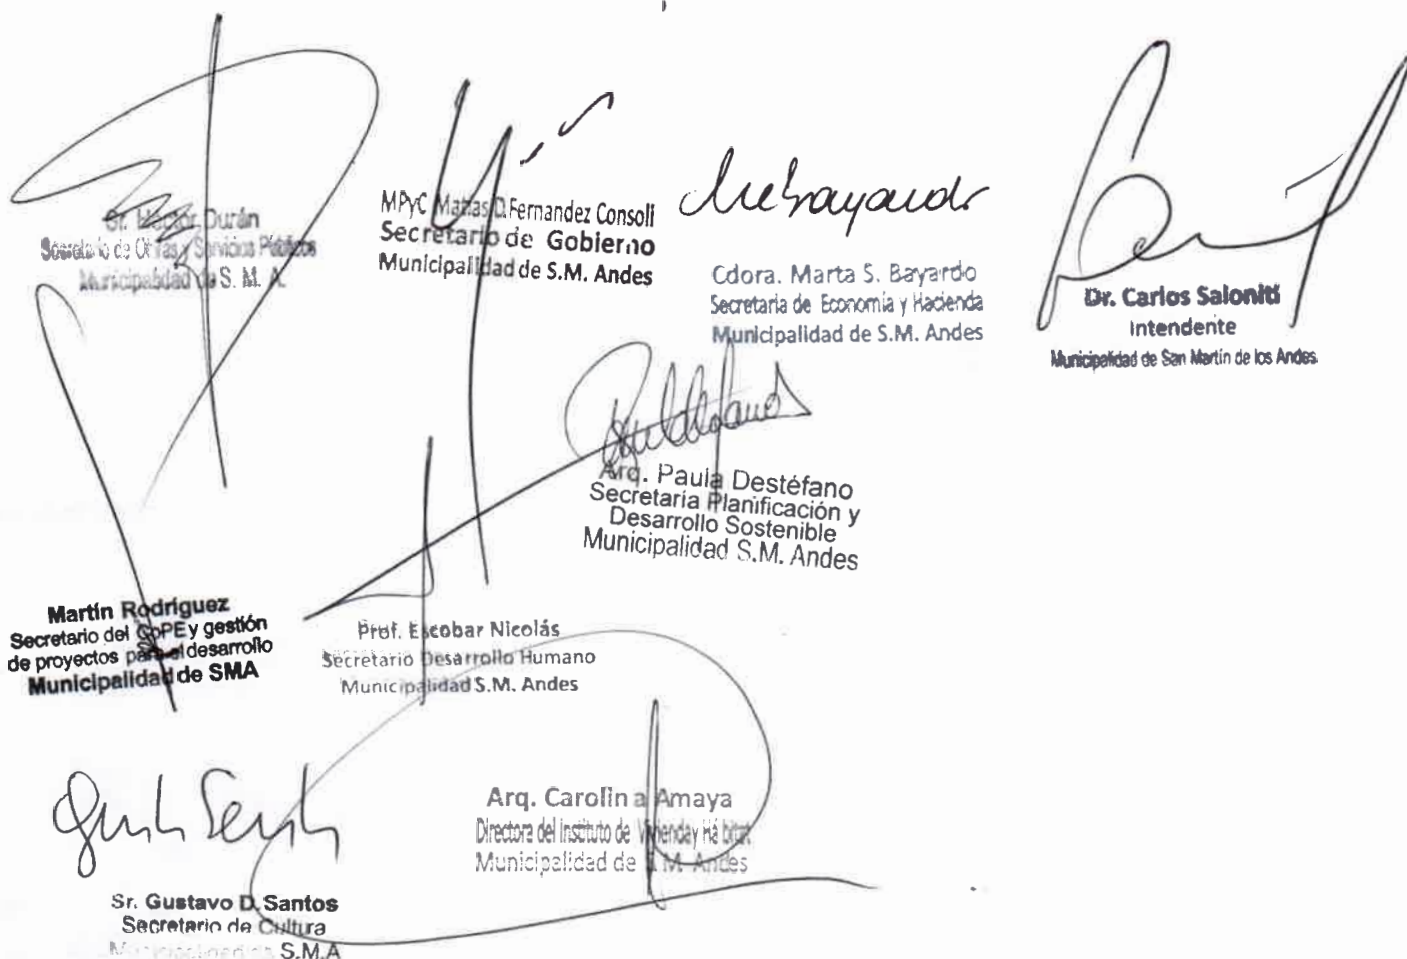 Sr. Héctor Durán
Secretario de Obras y Servicios Públicos
Municipalidad de S. M. A.
MPyC Matías D. Fernandez Consoli
Secretario de Gobierno
Municipalidad de S.M. Andes
Cdora. Marta S. Bayardo
Secretaria de Economía y Hacienda
Municipalidad de S.M. Andes
Dr. Carlos Saloniti
Intendente
Municipalidad de San Martín de los Andes
Arq. Paula Destéfano
Secretaría Planificación y
Desarrollo Sostenible
Municipalidad S.M. Andes
Martín Rodríguez
Secretario del CoPE y gestión
de proyectos para el desarrollo
Municipalidad de SMA
Prof. Escobar Nicolás
Secretario Desarrollo Humano
Municipalidad S.M. Andes
Arq. Carolina Amaya
Directora del Instituto de Vivienda y Hábitat
Municipalidad de S.M. Andes
Sr. Gustavo D. Santos
Secretario de Cultura
Municipalidad de S.M.A